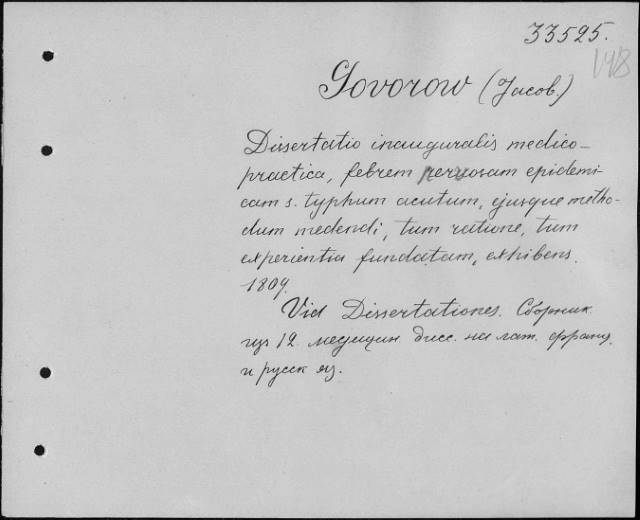 33525.
148
Govorow (Jacob.)
Dissertatio inauguralis medico-
practica, febrem nervosam epidemi-
cam s. typhum acutum, ejusque metho-
dum medendi, tum ratione, tum
experientia fundatam, exhibens.
1809.
Vid Dissertationes. Сборник
из 12 медицин. дисс. на лат. франц.
и русск яз.